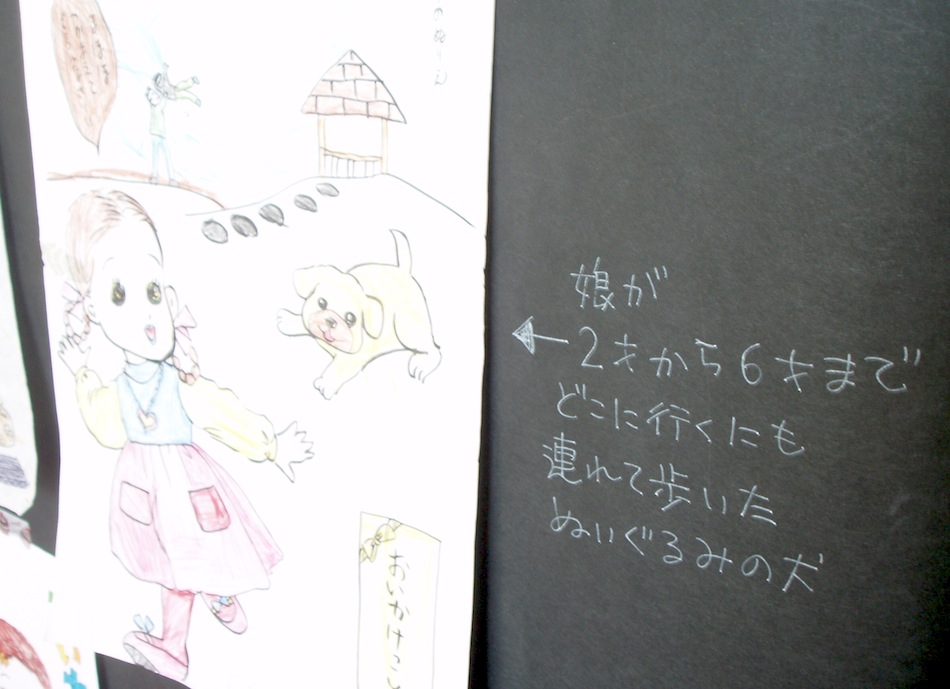 娘が
2才から6才まで
どこに行くにも
連れて歩いた
ぬいぐるみの犬
おいかけっこ